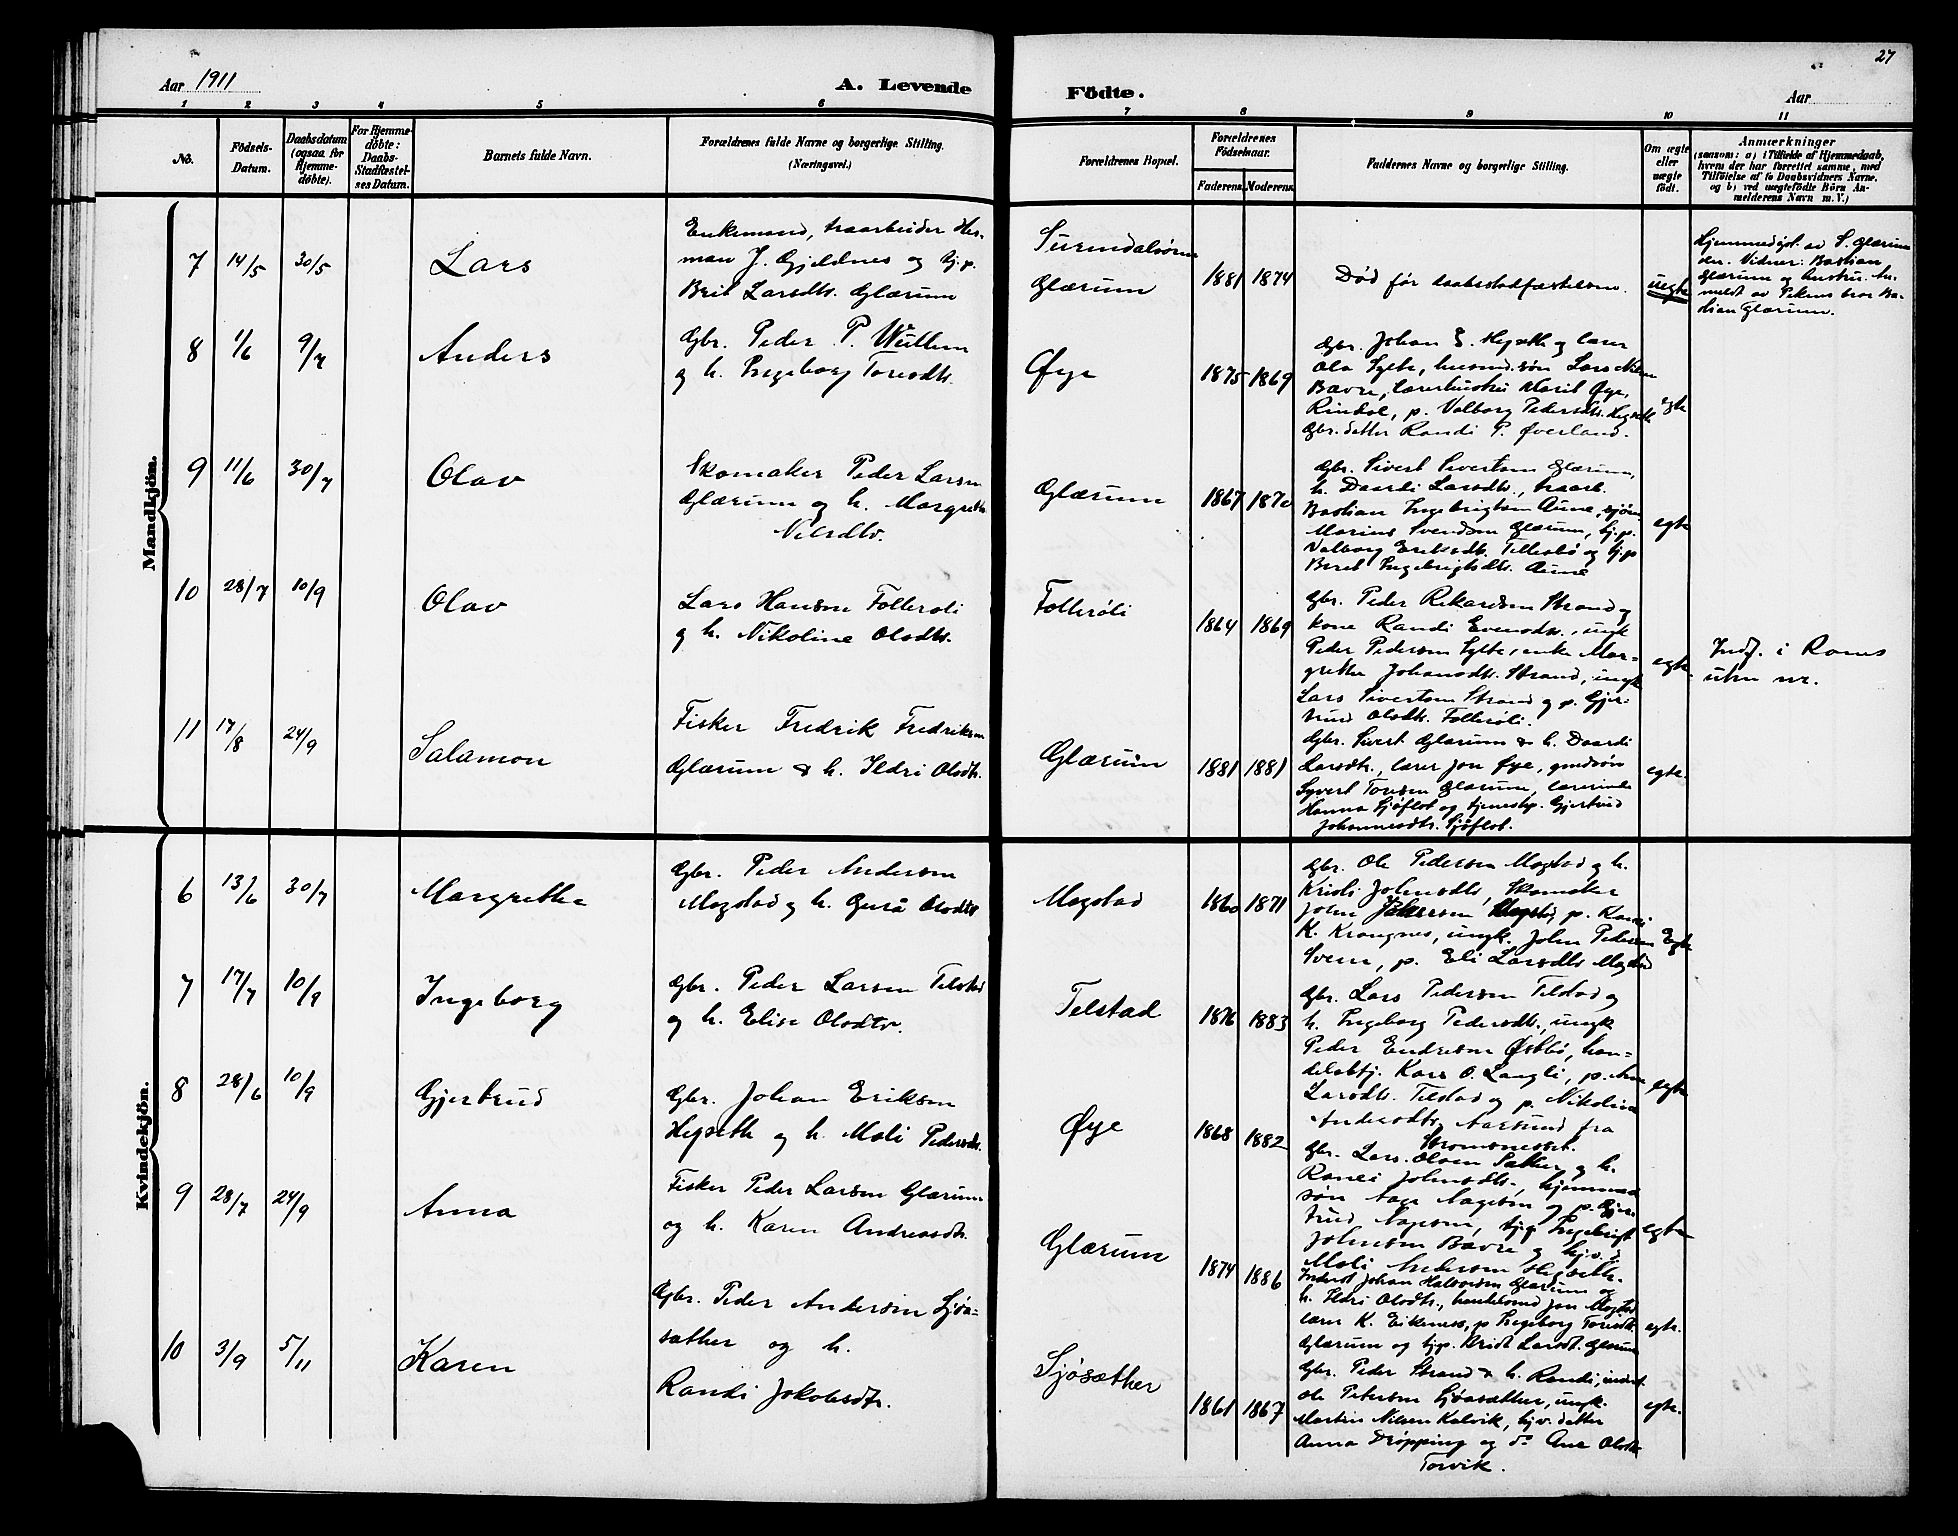 27
Aar 1911
A. Levende
Födte.
Aar
1 2 3 4 5 6 7 8 9 10 11
No.
Födsels-
Datum.
Daabsdatum
(ogsaa for
Hjemme-
döbte).
For Hjemme-
döbte:
Daabs-
Stadfæstel-
ses Datum.
Barnets fulde Navn.
Forældrenes fulde Navne og borgerlige Stilling.
(Næringsvei.)
Forældrenes Bopæl.
Forældrenes
Födselsaar.
Faderens. Moderens.
Faddernes Navne og borgerlige Stilling.
Om ægte
eller
uægte
født.
Anmærkninger
(saasom: a) i Tilfælde af Hjemmedaab,
hvem der har forrettet samme, med
Tilföielse af to Daabsvidners Navne,
og b) ved uægtefödte Börn An-
melderens Navn m. V.)
Mandkjön.
7
14/5
30/5
Lars
Enkemand, traarbeider Her-
man J. Gjeldnes og tj.p.
Brit Larsdtr. Glærum
Surendalsøren
Glærum
1881 1874
Død før daabsstadfæstelsen.
uegte
Hjemmedøpt av S. Glærum
den. Vidner: Bastian
Glærum og hustru. An-
meldt av Pikens bror Ba-
stian Glærum.
8
1/6
9/7
Anders
Gbr. Peder P. Wullum
og h. Ingeborg Toresdtr.
Øye
1875 1869
Gbr. Johan E. Hegseth og lærer
Ola Sylte, husmd.søn Lars Nilsen
Bævre, lærerhustru Marit Øye,
Rindal, p. Valborg Pedersdtr. Hegseth
Gbr.datter Randi P. Øverland.
egte
9
11/6
30/7
Olav
Skomaker Peder Larsen
Glærum og h. Margrethe
Nilsdtr.
Glærum
1867 1870
Gbr. Sivert Sivertsen Glærum,
h. Daardi Larsdtr., traarb.
Bastian Ingebrigtsen Aune, sjøm.
Marius Svendsen Glærum, tj.p.
Valborg Eriksdtr. Tellesbø og tj.p
Beret Ingebrigtsdtr. Aune
egte
10
28/7
10/9
Olav
Lars Hansen Follerøli
og h. Nikoline Olsdtr.
Follerøli
1864 1869
Gbr. Peder Rikardsen Strand og
kone Randi Evensdtr., ungk
Peder Pedersen Sylte, enke Mar-
grethe Johansdtr. Strand, ungk
Lars Sivertsen Strand og p. Gjer-
trud Olsdtr. Follerøli.
egte.
Indf. i Rames
uten nr.
11
17/8
24/9
Salamon
Fisker Fredrik Fredriksen
Glærum & h. Ildri Olsdtr.
Glærum
1881 1881
Gbr. Sivert Glærum & h. Daardi
Larsdtr., lærer Jon Øye, gmdsøn
Syvert Toresen Glærum, lærerinde
Hanna Sjøflot og tjenestep. Gjertrud
Johannesdtr. Sjøflot.
egte.
Kvindekjön.
6
13/6
30/7
Margrethe
Gbr. Peder Andersen
Mogstad og h. Guri Olsdtr
Mogstad
1860 1871
Gbr. Ole Pedersen Mogstad og h.
Kristi Johnsdtr., Skomaker
John Mogstad, p. Kari
K. Krangnes, ungk. John Pedersen
Svein, p. Eli Larsdtr Mogstad
Egte
7
17/7
10/9
Ingeborg
Gbr. Peder Larsen Telstad
og h. Elise Olsdtr.
Telstad
1876 1883
Gbr. Lars Pedersen Telstad og
h. Ingeborg Pedersdtr., ungk
Peder Endresen Østbø, han-
delsbtj. Kars O. Langli, p. Ane
Larsdtr. Telstad og p. Nikolina
Andersdtr. Aarsund fra
Strømsnesset.
egte
8
28/6
10/9
Gjertrud
Gbr. Johan Eriksen
Hegseth og h. Mali Pedersdtr.
Øye
1868 1882
Gbr. Lars Olsen Sæther og h.
Randi Johnsdtr. hjemmev
søn Aage Aagesen og p. Gjer
trud Aagesen, Ingebrigt
Johnsen Bævre og
Mali Andersen Hegseth.
egte
9
28/7
24/9
Anna
Fisker Peder Larsen Glærum
og h. Karen Andreasdtr.
Glærum
1874 1886
Inderst Johan Halvorsen Glærum og
h. Ildri Olsdtr., handelsmd Jon Mogstad
lærer K. Eikenes, p Ingeborg Toresdtr.
Glærum og tj.p. Kristi Larsdt. Glærum
egte.
10
3/9
5/11
Karen
Gbr. Peder Andersen Sjøa-
sæther og h.
Randi Jakobsdtr.
Sjøsæther
1861 1867
Gbr. Peder Strand & h. Randi, inderst
Ole Petersen Sjøasæther, ungk.
Martin Nilsen Kalvik, hj.v. datter
Anna Drøpping og do Ane Olsdtr
Torvik.
egte.